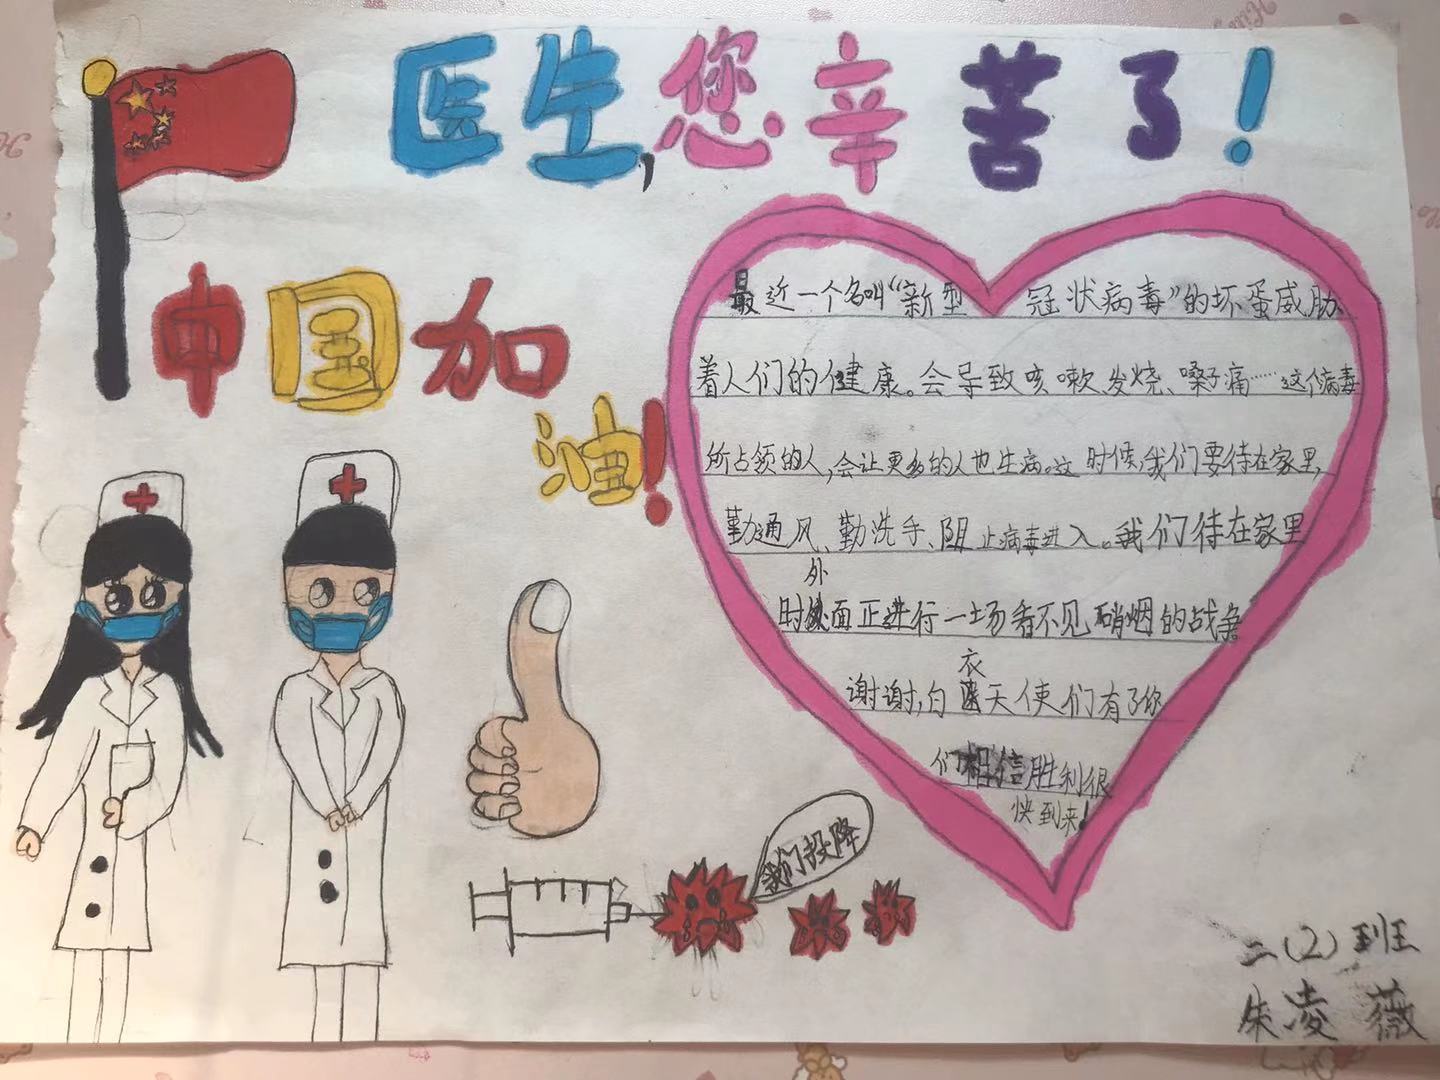 医生,您辛苦了!
中国加
油!
最近一个名叫“新型冠状病毒”的坏蛋威胁
着人们的健康。会导致咳嗽、发烧、嗓子痛……这个病毒
所占领的人,会让更多的人也生病。这时候,我们要待在家里,
勤通风、勤洗手、阻止病毒进入。我们待在家里
时外面正进行一场看不见硝烟的战争。
谢谢,白衣天使们有了你
们相信胜利很
快到来!
我们投降
二(2)班
朱凌薇